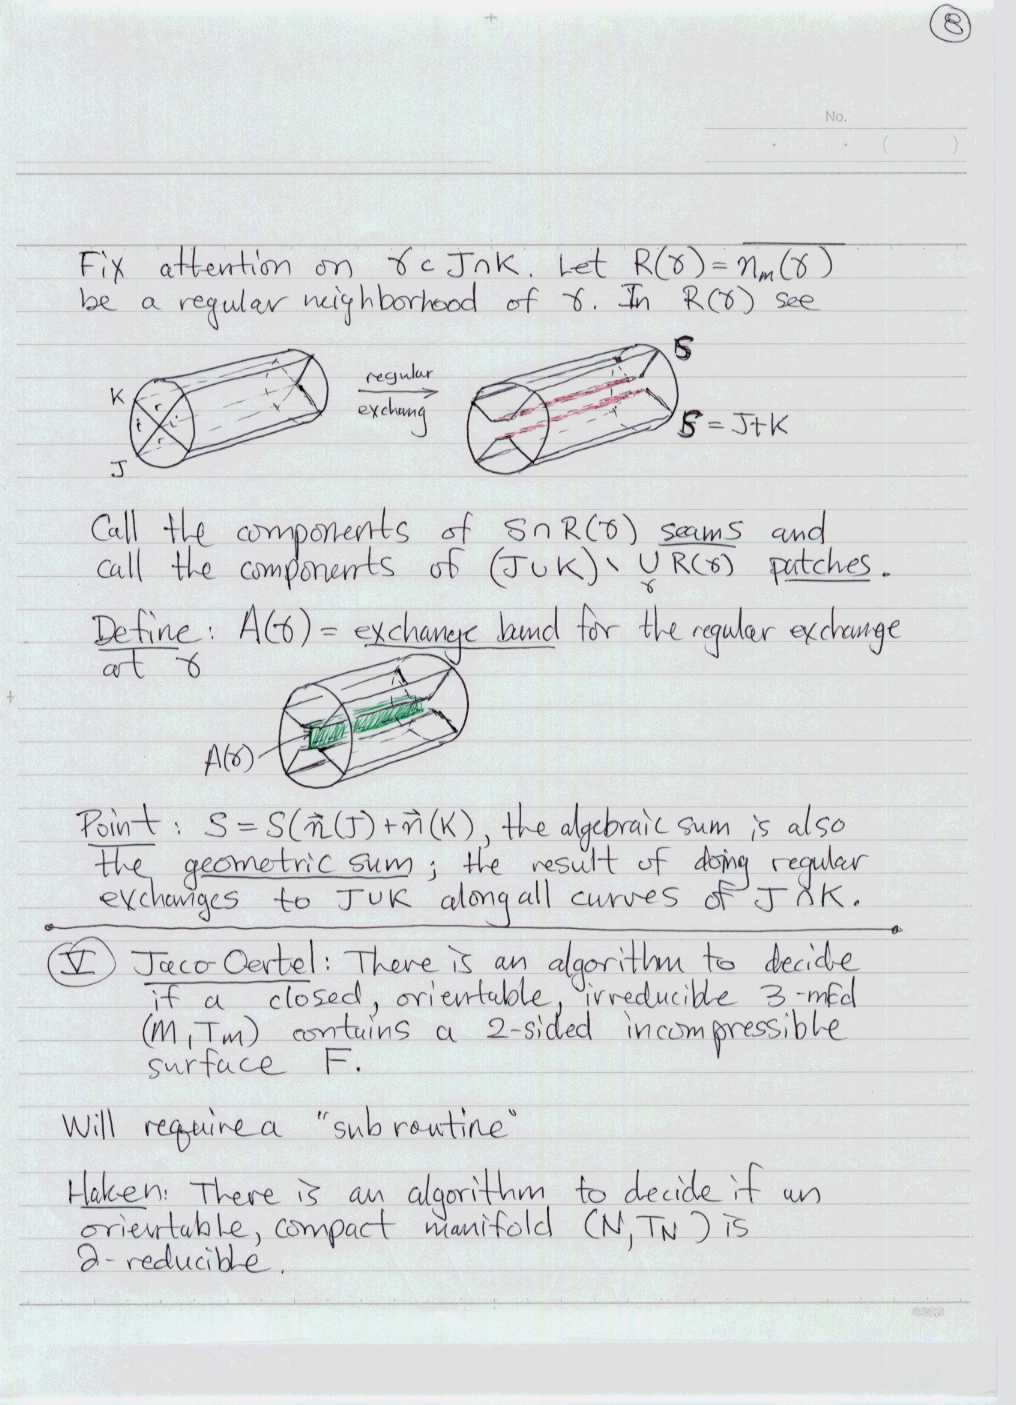 8
No.
Fix attention on γ ⊂ J∩K. Let R(γ) = n_m(γ)
be a regular neighborhood of γ. In R(γ) see
K
r
r
r
r
J
regular
exchang
S
S = J+K
Call the components of S∩R(γ) seams and
call the components of (J∪K)\ ∪ R(γ) patches.
γ
Define: A(γ) = exchange band for the regular exchange
at γ
A(γ)
Point: S = S(n⃗(J) + n⃗(K), the algebraic sum is also
the geometric sum; the result of doing regular
exchanges to J∪K along all curves of J∩K.
V Jaco-Oertel: There is an algorithm to decide
if a closed, orientable, irreducible 3-mfd
(M, T_M) contains a 2-sided incompressible
surface F.
Will require a "subroutine"
Haken: There is an algorithm to decide if an
orientable, compact manifold (N, T_N) is
∂-reducible.